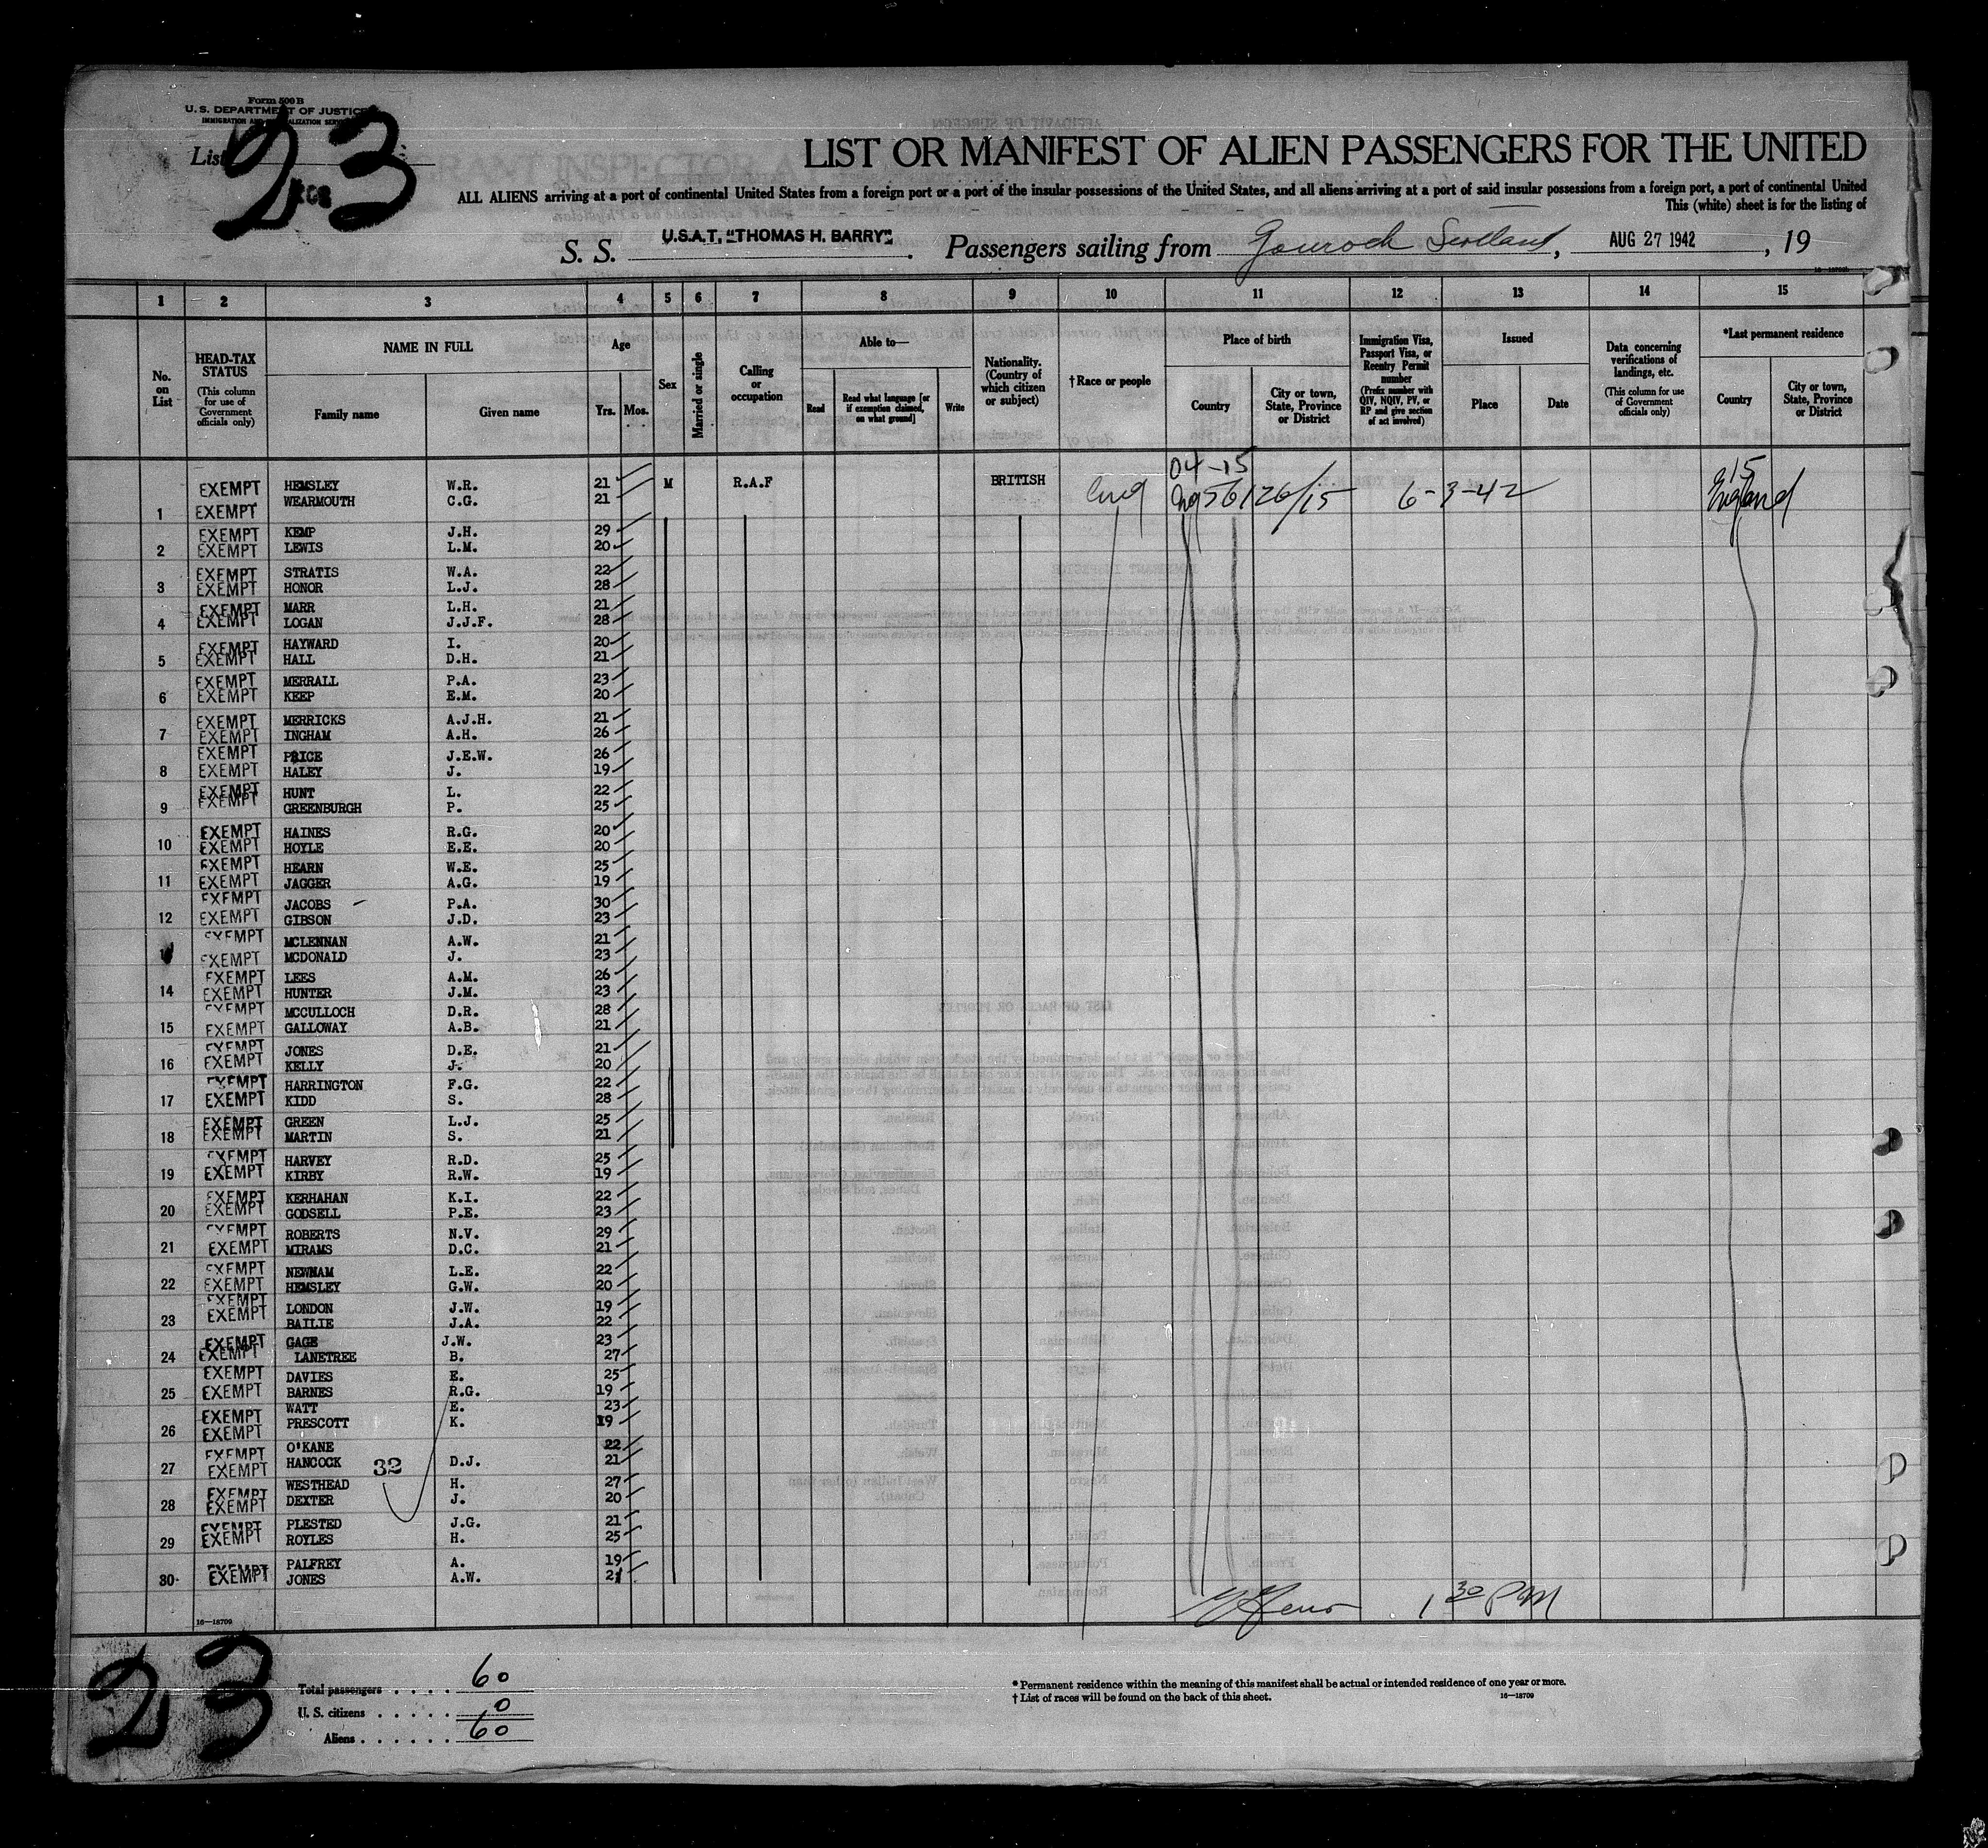 Form 500 B
U. S. DEPARTMENT OF JUSTICE
IMMIGRATION AND NATURALIZATION SERVICE
List 23
LIST OR MANIFEST OF ALIEN PASSENGERS FOR THE UNITED
ALL ALIENS arriving at a port of continental United States from a foreign port or a port of the insular possessions of the United States, and all aliens arriving at a port of said insular possessions from a foreign port, a port of continental United
This (white) sheet is for the listing of
S. S. U.S.A.T. "THOMAS H. BARRY". Passengers sailing from Gourock Scotland, AUG 27 1942, 19
1 2 3 4 5 6 7 8 9 10 11 12 13 14 15
No. on List
HEAD-TAX STATUS (This column for use of Government officials only)
NAME IN FULL
Family name Given name
Age
Yrs. Mos.
Sex
Married or single
Calling or occupation
Able to—
Read Read what language [or if exemption claimed, on what ground] Write
Nationality. (Country of which citizen or subject)
† Race or people
Place of birth
Country City or town, State, Province or District
Immigration Visa, Passport Visa, or Reentry Permit number (Prefix number with QIV, NQIV, PV, or RP and give section of act involved)
Issued
Place Date
Data concerning verifications of landings, etc. (This column for use of Government officials only)
*Last permanent residence
Country City or town, State, Province or District
04-15 15
EXEMPT HEMSLEY W.R. 21 M R.A.F BRITISH Eng Eng 56126/15 6-3-42 England
1 EXEMPT WEARMOUTH C.G. 21
EXEMPT KEMP J.H. 29
2 EXEMPT LEWIS L.M. 20
EXEMPT STRATIS W.A. 22
3 EXEMPT HONOR L.J. 28
EXEMPT MARR L.H. 21
4 EXEMPT LOGAN J.J.F. 28
EXEMPT HAYWARD I. 20
5 EXEMPT HALL D.H. 21
EXEMPT MERRALL P.A. 23
6 EXEMPT KEEP E.M. 20
EXEMPT MERRICKS A.J.H. 21
7 EXEMPT INGHAM A.H. 26
EXEMPT PRICE J.E.W. 26
8 EXEMPT HALEY J. 19
EXEMPT HUNT L. 22
9 EXEMPT GREENBURGH P. 25
EXEMPT HAINES R.G. 20
10 EXEMPT HOYLE E.E. 20
EXEMPT HEARN W.E. 25
11 EXEMPT JAGGER A.G. 19
EXEMPT JACOBS P.A. 30
12 EXEMPT GIBSON J.D. 23
EXEMPT MCLENNAN A.W. 21
EXEMPT MCDONALD J. 23
EXEMPT LEES A.M. 26
14 EXEMPT HUNTER J.M. 23
EXEMPT MCCULLOCH D.R. 28
15 EXEMPT GALLOWAY A.B. 21
EXEMPT JONES D.E. 21
16 EXEMPT KELLY J. 20
EXEMPT HARRINGTON F.G. 22
17 EXEMPT KIDD S. 28
EXEMPT GREEN L.J. 25
18 EXEMPT MARTIN S. 21
EXEMPT HARVEY R.D. 25
19 EXEMPT KIRBY R.W. 19
EXEMPT KERHAHAN K.I. 22
20 EXEMPT GODSELL P.E. 23
EXEMPT ROBERTS N.V. 29
21 EXEMPT MIRAMS D.C. 21
EXEMPT NEWNAM L.E. 22
22 EXEMPT HEMSLEY G.W. 20
EXEMPT LONDON J.W. 19
23 EXEMPT BAILIE J.A. 22
EXEMPT GAGE J.W. 23
24 EXEMPT LANETREE B. 27
EXEMPT DAVIES E. 25
25 EXEMPT BARNES R.G. 19
EXEMPT WATT E. 23
26 EXEMPT PRESCOTT K. 19
EXEMPT O'KANE 22
27 EXEMPT HANCOCK 32 D.J. 21
EXEMPT WESTHEAD H. 27
28 EXEMPT DEXTER J. 20
EXEMPT PLESTED J.G. 21
29 EXEMPT ROYLES H. 25
EXEMPT PALFREY A. 19
30 EXEMPT JONES A.W. 21
1 30 PM
16—18709
23
Total passengers . . . . 60
U. S. citizens . . . . . 0
Aliens . . . . . . 60
* Permanent residence within the meaning of this manifest shall be actual or intended residence of one year or more.
† List of races will be found on the back of this sheet. 16—18709